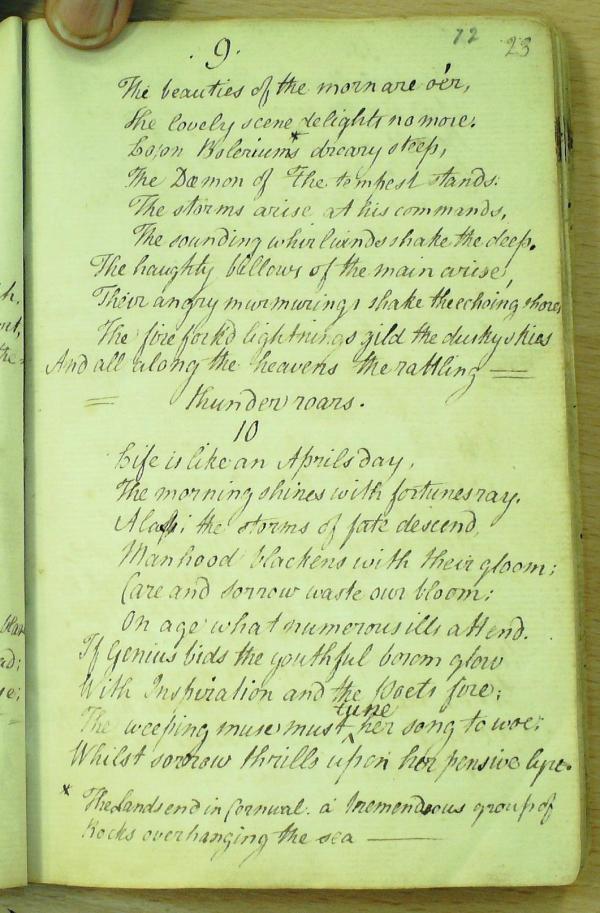 12 23
9.
The beauties of the morn are o'er,
The lovely scene delights no more;
Lo, on Bolerium's* dreary steep,
The Dæmon of the tempest stands:
The storms arise at his commands,
The sounding whirlwinds shake the deep.
The haughty billows of the main arise,
Their angry murmurings shake the echoing shores
The fire fork'd lightnings gild the dusky skies
And all along the heavens the rattling =
= thunder roars.
10
Life is like an Aprils day,
The morning shines with fortunes ray.
Alass; the storms of fate descend,
Manhood blackens with their gloom;
Care and sorrow waste our bloom;
On age what numerous ills attend.
If Genius bids the youthful bosom glow
With Inspiration and the Poets fire;
The weeping muse must ^tune her song to woe;
Whilst sorrow thrills upon her pensive lyre.
* The Lands end in Cornwal. a tremendeous group of
Rocks overhanging the sea —